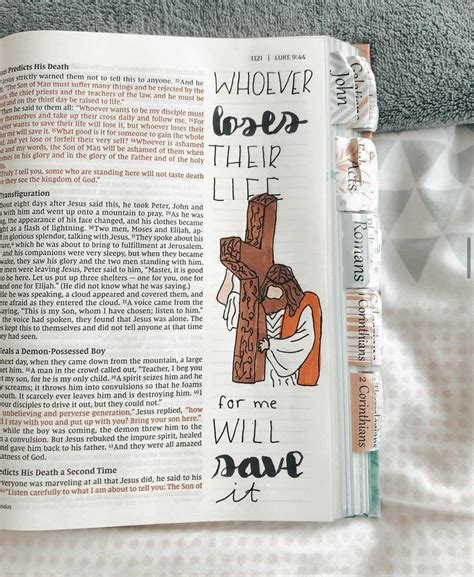 1321 | LUKE 9:44
us Predicts His Death
Jesus strictly warned them not to tell this to anyone. 22And he
"The Son of Man must suffer many things and be rejected by the
, the chief priests and the teachers of the law, and he must be
and on the third day be raised to life."
Then he said to them all: "Whoever wants to be my disciple must
y themselves and take up their cross daily and follow me. 24For
wants to save their life will lose it, but whoever loses their
for me will save it. 25What good is it for someone to gain the whole
, and yet lose or forfeit their very self? 26Whoever is ashamed
and my words, the Son of Man will be ashamed of them when
omes in his glory and in the glory of the Father and of the holy
Truly I tell you, some who are standing here will not taste death
they see the kingdom of God."
Transfiguration
bout eight days after Jesus said this, he took Peter, John and
with him and went up onto a mountain to pray. 29As he was
ng, the appearance of his face changed, and his clothes became
ht as a flash of lightning. 30Two men, Moses and Elijah, ap-
in glorious splendor, talking with Jesus. 31They spoke about his
ture, which he was about to bring to fulfillment at Jerusalem.
and his companions were very sleepy, but when they became
wake, they saw his glory and the two men standing with him.
e men were leaving Jesus, Peter said to him, "Master, it is good
to be here. Let us put up three shelters—one for you, one for
and one for Elijah." (He did not know what he was saying.)
While he was speaking, a cloud appeared and covered them, and
ere afraid as they entered the cloud. 35A voice came from the
saying, "This is my Son, whom I have chosen; listen to him."
the voice had spoken, they found that Jesus was alone. The
es kept this to themselves and did not tell anyone at that time
they had seen.
eals a Demon-Possessed Boy
next day, when they came down from the mountain, a large
et him. 38A man in the crowd called out, "Teacher, I beg you
t my son, for he is my only child. 39A spirit seizes him and he
y screams; it throws him into convulsions so that he foams
outh. It scarcely ever leaves him and is destroying him. 40I
our disciples to drive it out, but they could not."
unbelieving and perverse generation," Jesus replied, "how
ll I stay with you and put up with you? Bring your son here."
while the boy was coming, the demon threw him to the
n a convulsion. But Jesus rebuked the impure spirit, healed
and gave him back to his father. 43And they were all amazed
atness of God.
edicts His Death a Second Time
everyone was marveling at all that Jesus did, he said to his
"Listen carefully to what I am about to tell you: The Son of
WHOEVER
loses
THEIR
LIFE
for me
WILL
save
it
John
Acts
Romans
Corinthians
2 Corinthians